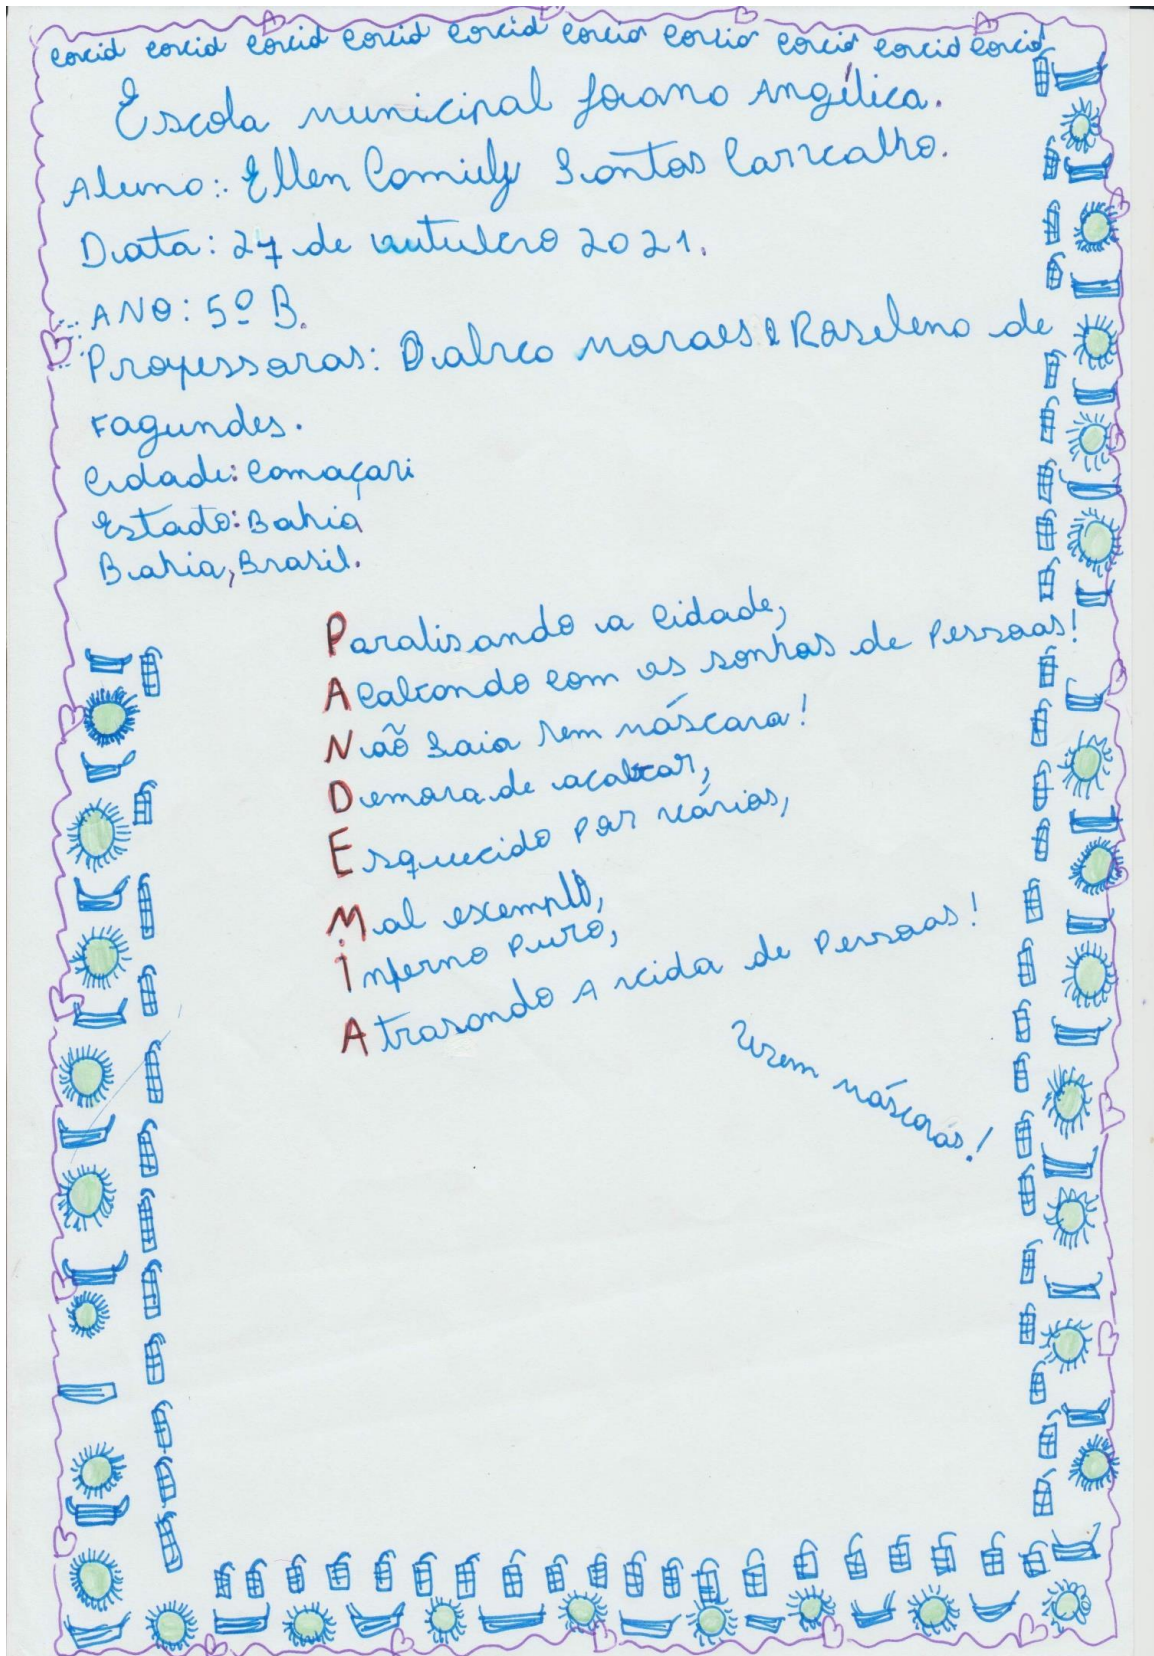 covid covid covid covid covid covid covid covid covid covid
Escola municipal Joana Angélica.
Aluno: Ellen Camily Santos Carvalho.
Data: 27 de outubro 2021.
ANO: 5º B.
Professoras: Dalva Moraes e Roselena de
Fagundes.
Cidade: Camaçari
Estado: Bahia
Bahia, Brasil.
Paralisando a Cidade,
Acabando com os sonhos de Pessoas!
Não Saia sem máscara!
Demora de acabar,
Esquecido por vários,
Mal exemplo,
Inferno Puro,
Atrasando A vida de Pessoas!
Usem máscaras!